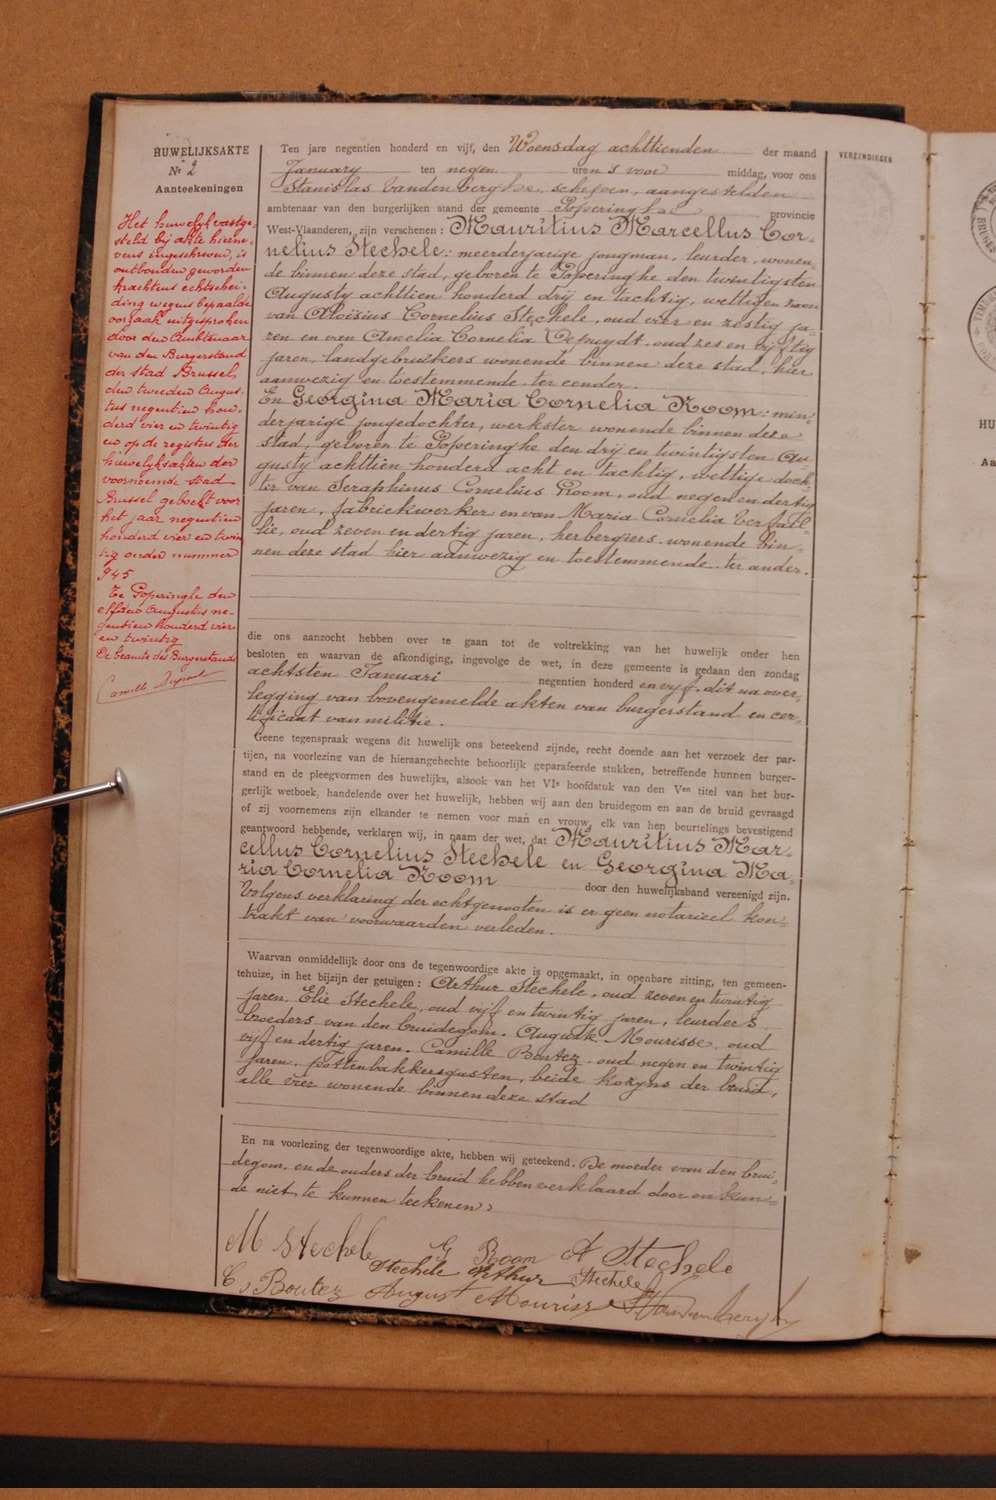 HUWELIJKSAKTE
Nr 2
Aanteekeningen
Het huwelijk vastge-
steld bij akte hierne-
vens ingeschreven, is
ontbonden geworden
krachtens echtschei-
ding wegens bepaalde
oorzaak uitgesproken
door den Ambtenaar
van den Burgerstand
der stad Brussel,
den tweeden Augus-
tus negentien hon-
derd vier en twintig
en op de registers der
huwelijksakten der
voornoemde stad
Brussel geboekt voor
het jaar negentien
honderd vier en twin
tig onder nummer
945
Te Poperinghe den
elfden Augustus ne-
gentien honderd vier
en twintig
De beamte des Burgerstands
Camille
Ten jare negentien honderd en vijf, den Woensdag achttienden der maand
January ten negen uren s voor middag, voor ons
Stanislas Vanden Berghe, schepen, aangestelden
ambtenaar van den burgerlijken stand der gemeente Poperinghe provincie
West-Vlaanderen, zijn verschenen: Mauritius Marcellus Cor-
nelius Stechele: meerderjarige jongman, leurder, wonen-
de binnen deze stad, geboren te Poperinghe den twintigsten
Augusty achttien honderd drij en tachtig, wettigen zoon
van Aloïsius Cornelius Stechele, oud vier en zestig ja-
ren en van Amelia Cornelia Depuydt, oud zes en vijftig
jaren, landgebruikers wonende binnen deze stad, hier
aanwezig en toestemmende. ter eender.
En Georgina Maria Cornelia Room: min-
derjarige jongedochter, werkster wonende binnen deze
stad, geboren te Poperinghe den drij en twintigsten Au-
gusty achttien honderd acht en tachtig, wettige doch-
ter van Seraphinus Cornelius Room, oud negen en dertig
jaren, fabriekwerker en van Maria Cornelia Verfail-
lie, oud zeven en dertig jaren, herbergiers wonende bin-
nen deze stad hier aanwezig en toestemmende. ter ander.
die ons aanzocht hebben over te gaan tot de voltrekking van het huwelijk onder hen
besloten en waarvan de afkondiging, ingevolge de wet, in deze gemeente is gedaan den zondag
achtsten Januari negentien honderd en vijf, dit na over-
legging van bovengemelde akten van burgerstand en cer-
tificaat van militie.
Geene tegenspraak wegens dit huwelijk ons beteekend zijnde, recht doende aan het verzoek der par-
tijen, na voorlezing van de hieraangehechte behoorlijk geparafeerde stukken, betreffende hunnen burger-
stand en de pleegvormen des huwelijks, alsook van het VIe hoofdstuk van den Ven titel van het bur-
gerlijk wetboek, handelende over het huwelijk, hebben wij aan den bruidegom en aan de bruid gevraagd
of zij voornemens zijn elkander te nemen voor man en vrouw, elk van hen beurtelings bevestigend
geantwoord hebbende, verklaren wij, in naam der wet, dat Mauritius Mar-
cellus Cornelius Stechele en Georgina Ma-
ria Cornelia Room door den huwelijksband vereenigd zijn.
Volgens verklaring der echtgenooten is er geen notarieel kon-
trakt van voorwaarden verleden.
Waarvan onmiddellijk door ons de tegenwoordige akte is opgemaakt, in openbare zitting, ten gemeen-
tehuize, in het bijzijn der getuigen: Arthur Stechele, oud zeven en twintig
jaren, Elie Stechele, oud vijf en twintig jaren, leurders
broeders van den bruidegom. August Mourisse, oud
vijf en dertig jaren. Camille Boutez, oud negen en twintig
jaren, pottenbakkersgasten, beide kozyns der bruid,
alle vier wonende binnen deze stad
En na voorlezing der tegenwoordige akte, hebben wij geteekend. De moeder van den brui-
degom, en de ouders der bruid hebben verklaard door onkun-
de niet te kunnen teekenen.
M Stechele G Room A Stechele
Stechele Arthur Stechele
C. Boutez August Mourisse
VERZENDINGEN